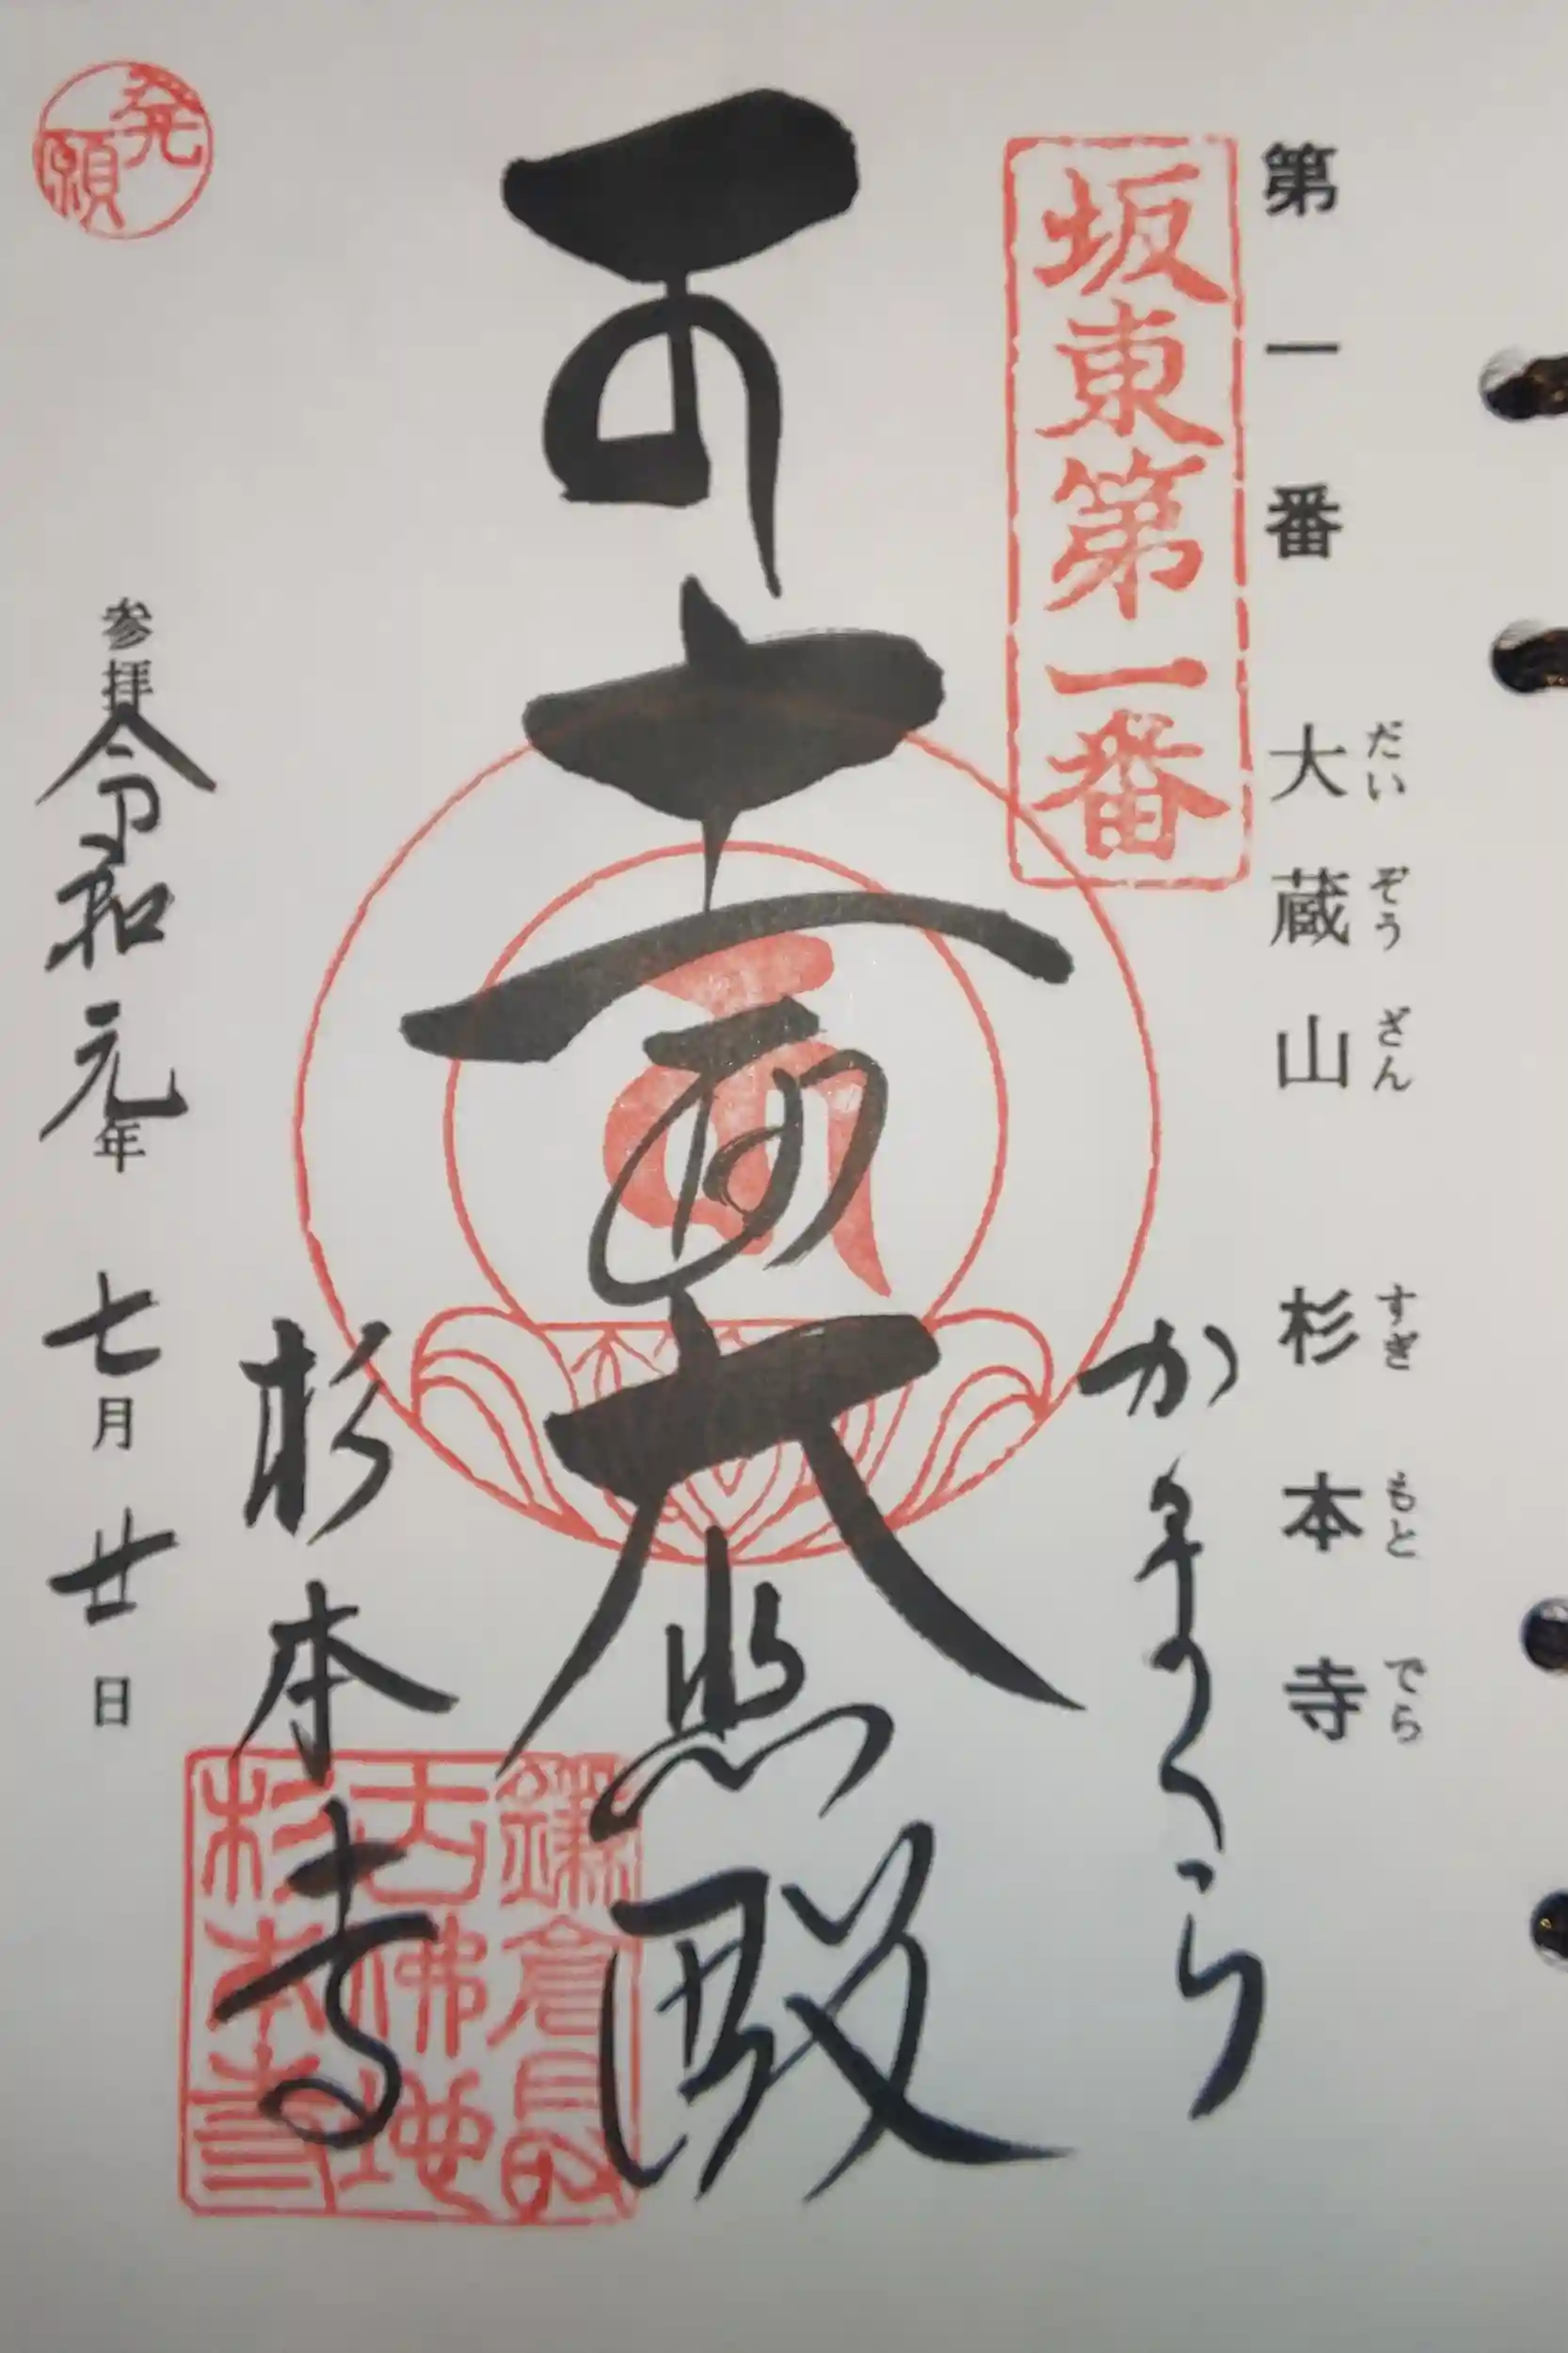 第一番 大蔵山 杉本寺
だいぞうざん すぎもとでら
坂東第一番
かまくら
十一面大悲殿
杉本寺
鎌倉最
古佛地
杉本寺
発願
参拝 令和元年 七月 廿日